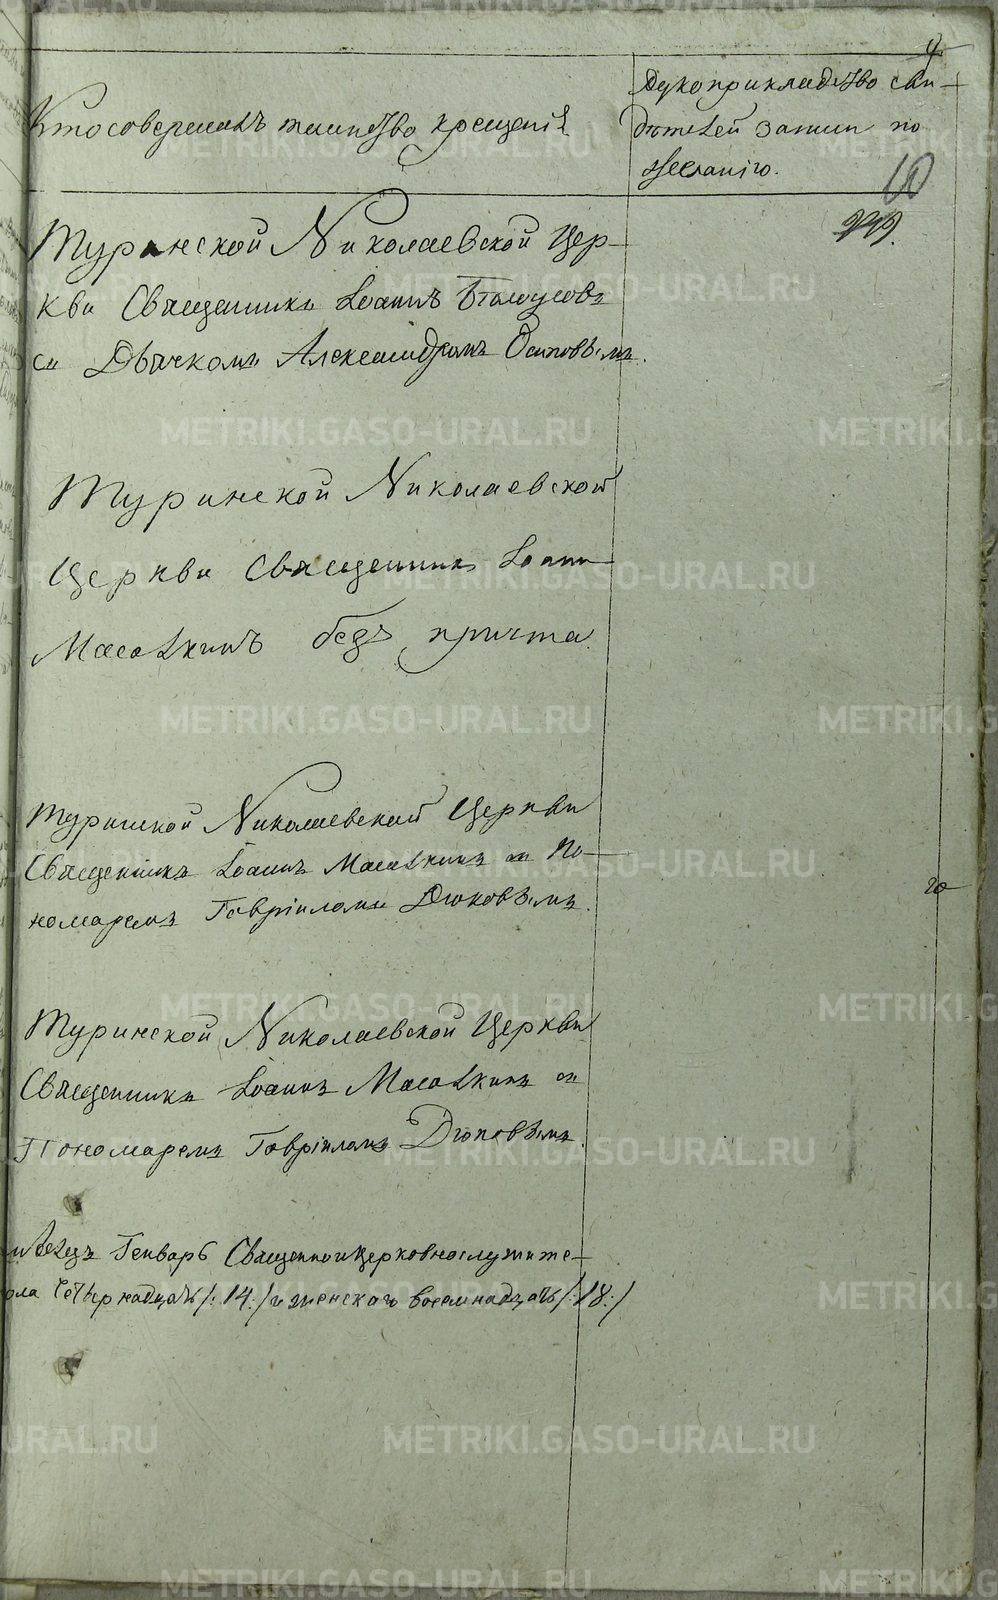 4
Кто совершалъ таинство крещенія
Рукоприкладство сви-
дѣтелей записи по
желанію.
10
Туринской Николаевской Цер-
кви Священникъ Іоаннъ Бѣлоусовъ
съ Дьячкомъ Александромъ Осиповымъ.
Туринской Николаевской
Церкви Священникъ Іоаннъ
безъ причта.
Туринской Николаевской Церкви
Священникъ Іоаннъ съ По-
номаремъ Гавріиломъ Дюковымъ.
Туринской Николаевской Церкви
Священникъ Іоаннъ съ
Пономаремъ Гавріиломъ Дюковымъ.
Генварь Священноицерковнослужите-
ола четырнадцать /:14:/ и женскаго восемнадцать /:18:/
METRIKI.GASO-URAL.RU